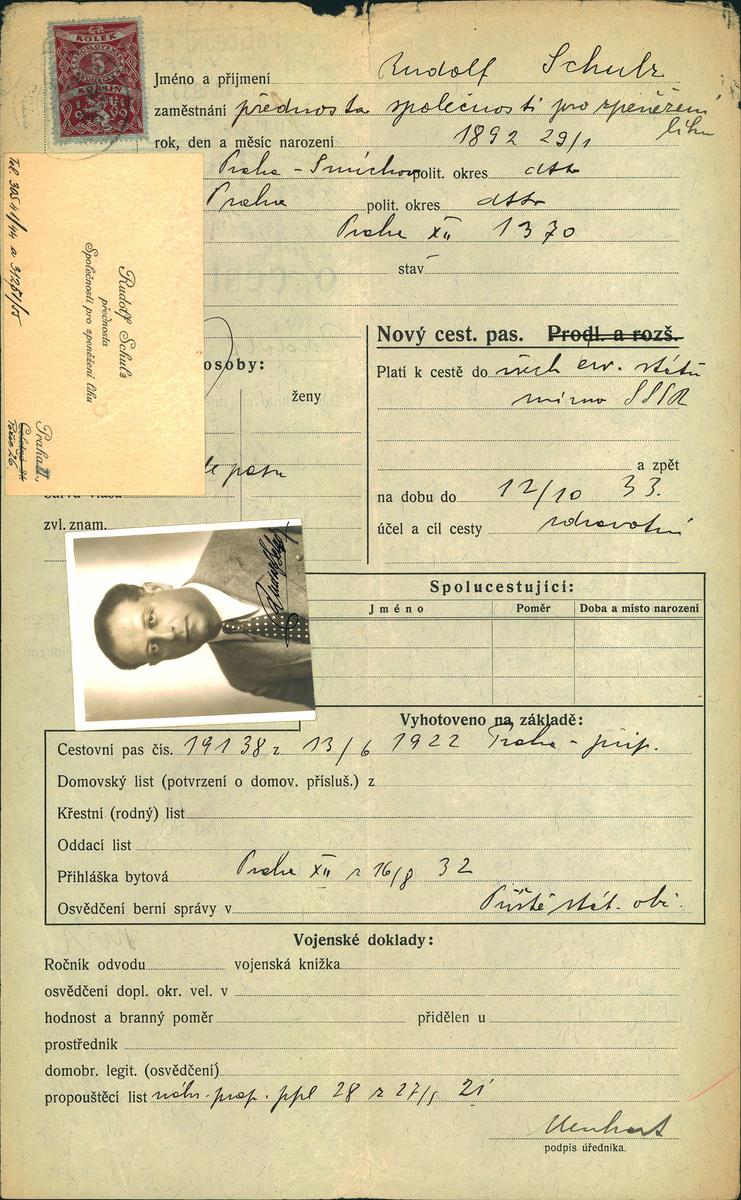 KOLEK
5
Jméno a příjmení Rudolf Schulz
zaměstnání přednosta společnosti pro zpeněžení lihu
rok, den a měsíc narození 1892 29/1
Praha - Smíchov polit. okres dtto
Praha polit. okres dtto
Praha XII 1370
stav
Tel. 305 41/44 a 31251/55
Rudolf Schulz
přednosta
Společnosti pro zpeněžení lihu
Praha II.,
osoby:
ženy
dle pasu
zvl. znam.
Nový cest. pas. Prodl. a rozš.
Platí k cestě do všech ev. států
mimo SSSR
a zpět
na dobu do 12/10 33.
účel a cíl cesty zdravotní
Spolucestující:
Jméno Poměr Doba a místo narození
Vyhotoveno na základě:
Cestovní pas čís. 19138 z 13/6 1922 Praha - přip.
Domovský list (potvrzení o domov. přísluš.) z
Křestní (rodný) list
Oddací list
Přihláška bytová Praha XII z 16/8 32
Osvědčení berní správy v Příště stát. obč.
Vojenské doklady:
Ročník odvodu vojenská knížka
osvědčení dopl. okr. vel. v
hodnost a branný poměr přidělen u
prostředník
domobr. legit. (osvědčení)
propouštěcí list náhr. prap. ppl 28 z 27/5 21
podpis úředníka.